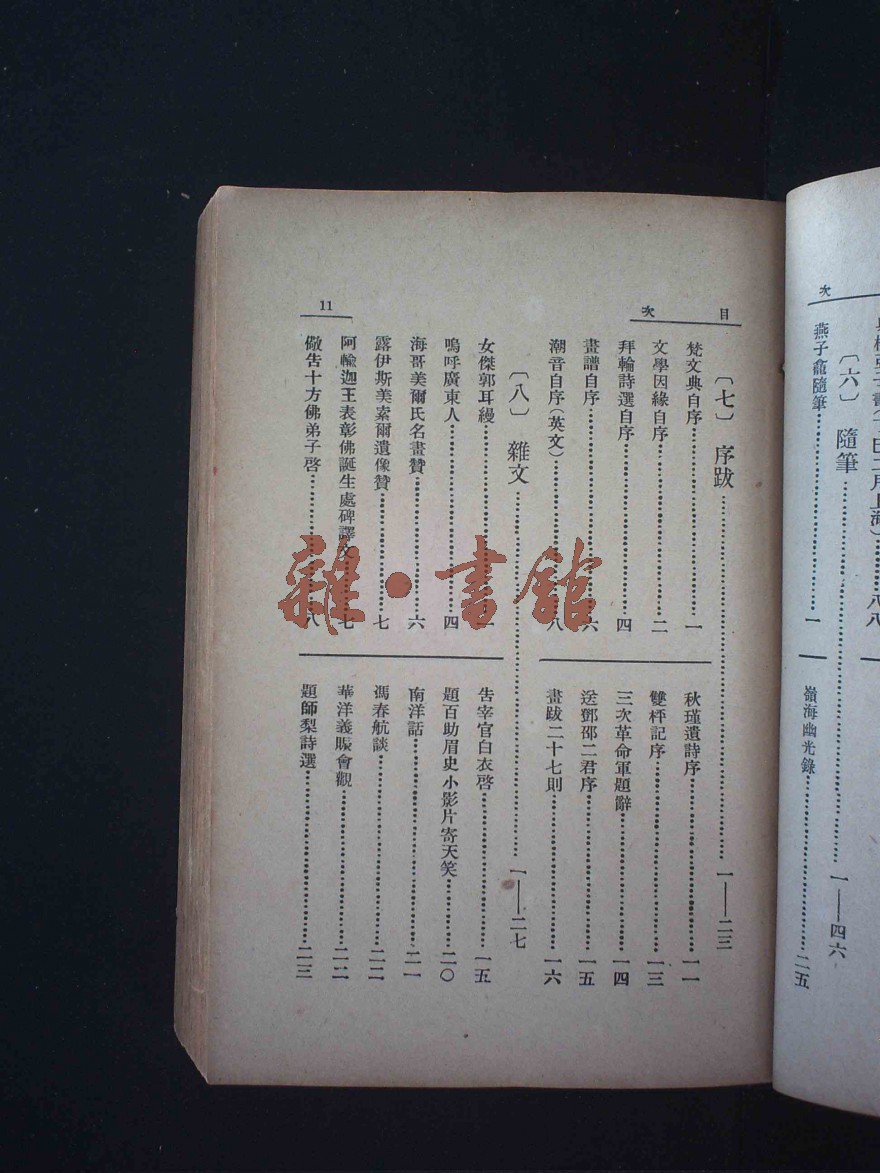 次
〔六〕 隨筆……一——四六
燕子龕隨筆……一
嶺海幽光錄……二五
目 次
〔七〕 序跋……一——二三
梵文典自序……一
文學因緣自序……二
拜輪詩選自序……四
畫譜自序……六
潮音自序(英文)……八
秋瑾遺詩序……一一
雙枰記序……一三
三次革命軍題辭……一四
送鄧邵二君序……一五
畫跋二十七則……一六
〔八〕 雜文……一——二七
女傑郭耳縵……一
嗚呼廣東人……四
海哥美爾氏名畫贊……六
露伊斯美索爾遺像贊……七
阿輸迦王表彰佛誕生處碑譯文……七
儆告十方佛弟子啓……八
告宰官白衣啓……一五
題百助眉史小影片寄天笑……二〇
南洋話……二一
馮春航談……二二
華洋義賑會觀……二二
題師梨詩選……二三
11
雜·書館